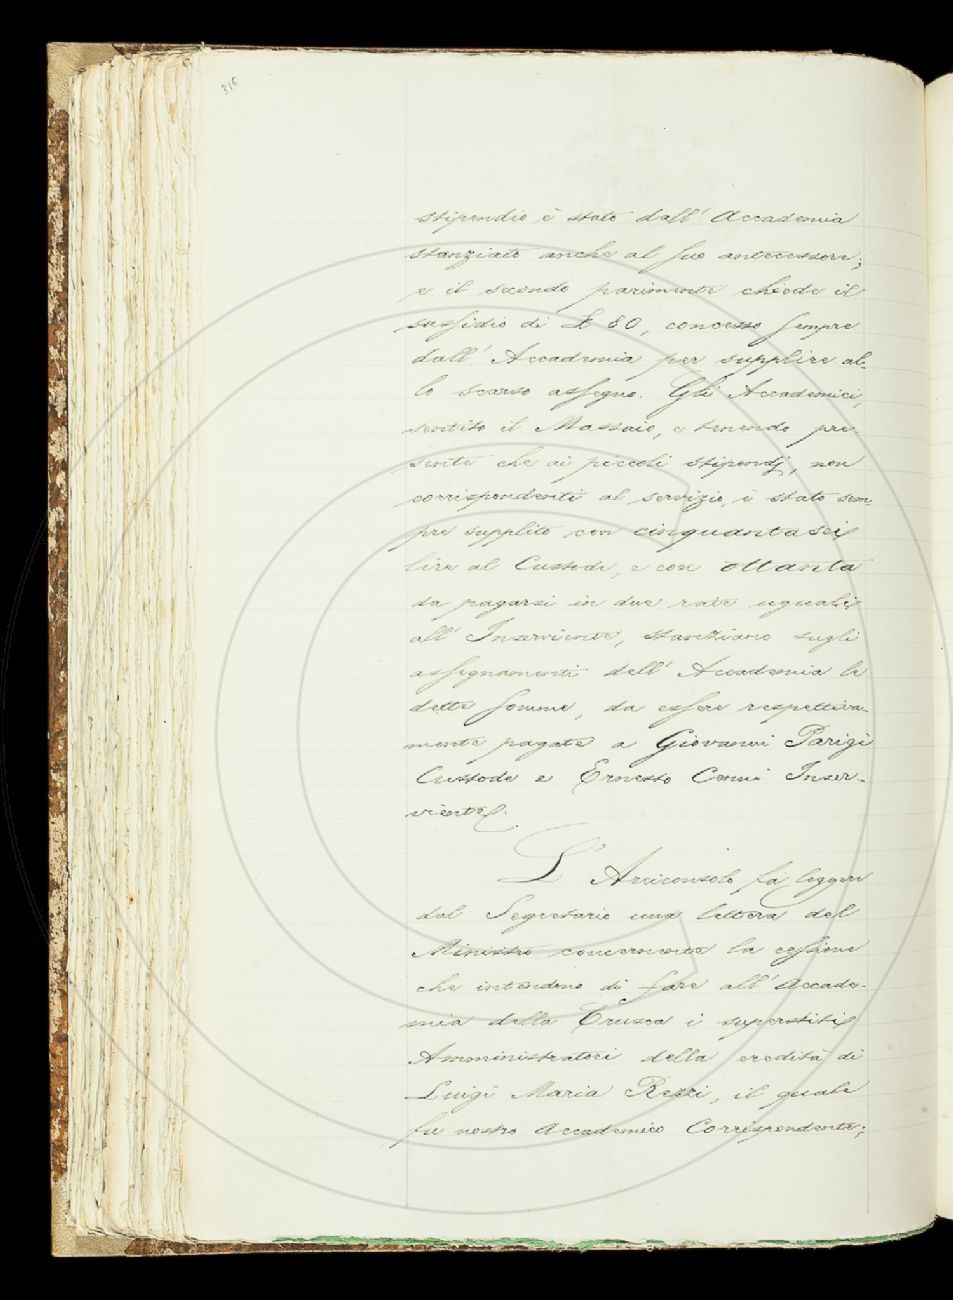 316
stipendio è stato dall' Accademia
stanziato anche al suo antecessore;
e il secondo parimente chiede il
sussidio di £ 80, concesso sempre
dall' Accademia per supplire al-
lo scarso assegno. Gli Accademici,
sentito il Massaio, e tenendo pre-
sente che ai piccoli stipendj, non
corrispondenti al servizio, è stato sem-
pre supplito con cinquantasei
lire al Custode, e con ottanta
da pagarsi in due rate uguali
all' Inserviente, stanziano sugli
assegnamenti dell' Accademia le
dette somme, da essere respettiva-
mente pagate a Giovanni Parigi
Custode e Ernesto Cenni Inser-
viente.
L' Arciconsolo fa leggere
dal Segretario una lettera del
Ministro concernente la cessione
che intendono di fare all' Accade-
mia della Crusca i superstiti
Amministratori della eredità di
Luigi Maria Rezzi, il quale
fu nostro Accademico Corrispondente;